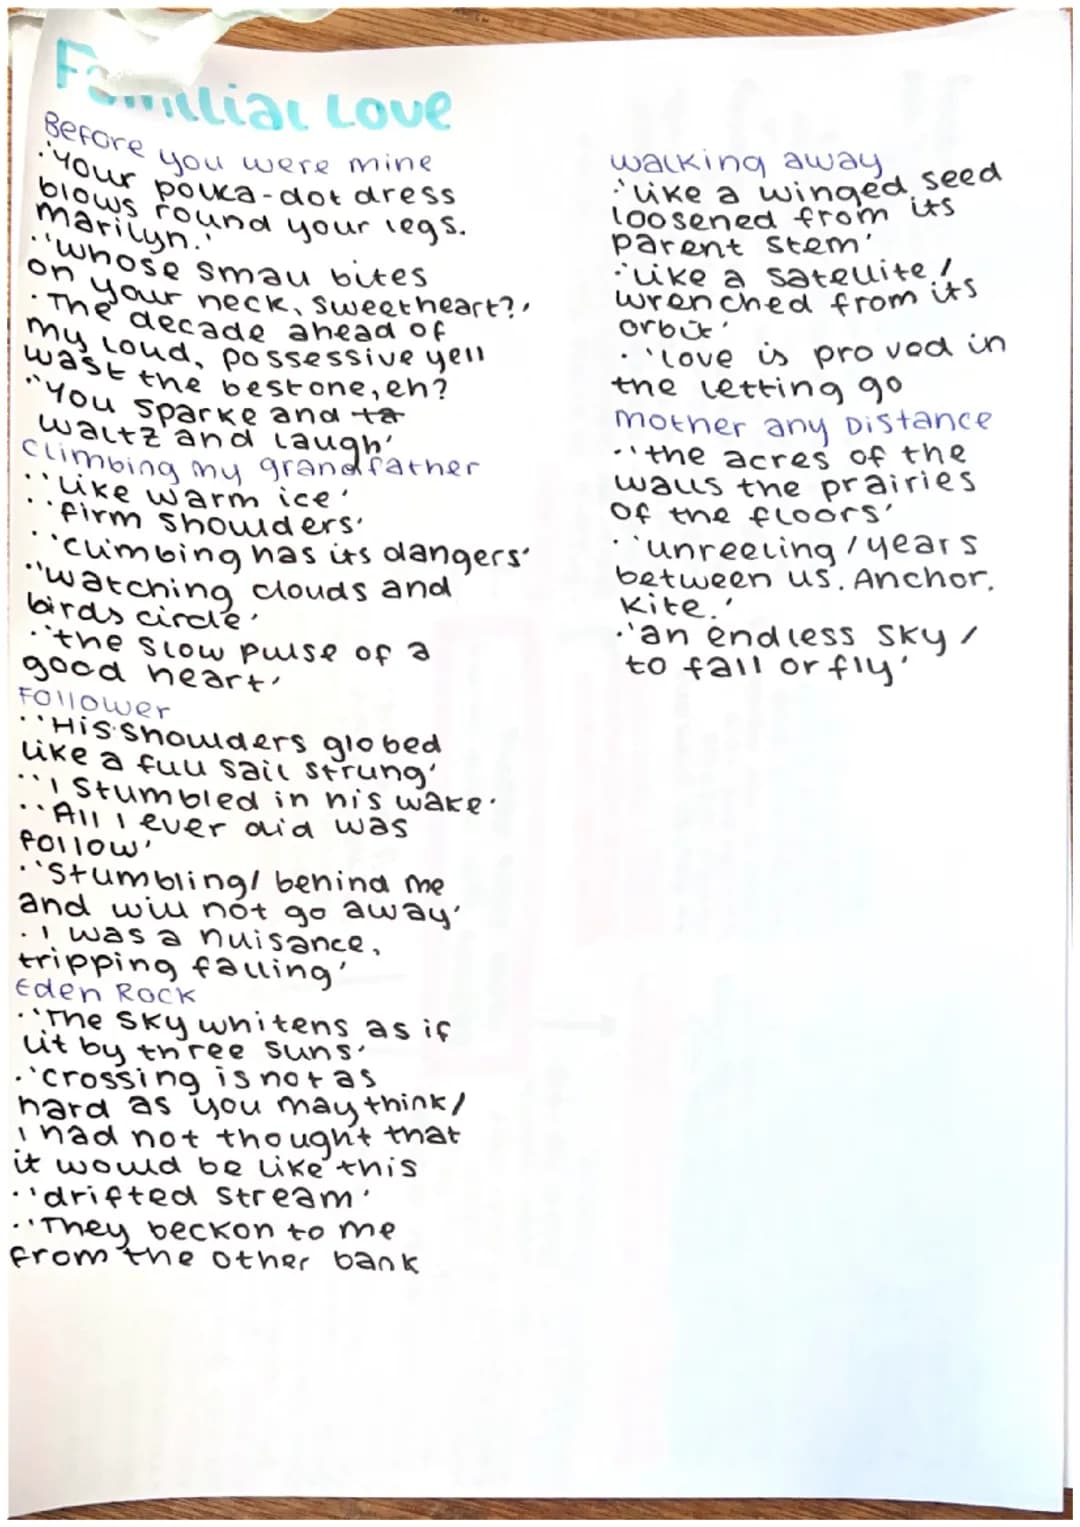 Familial Love
Before you were mine
·'Your polka-dot dress
blows round your legs.
Marilyn.'
·'whose small bites
on your neck, sweetheart?'
·The decade ahead of
my loud, possessive yell
wast the best one, eh?
·'You sparke and ta
waltz and laugh'
Climbing my grandfather
·'Like warm ice'
·'firm shoulders'
·'climbing has its dangers'
·'watching clouds and
birds circle'
·'the slow pulse of a
good heart'
Follower
·'His shoulders globed
like a full sail strung'
·'I stumbled in his wake'
·'All I ever did was
follow'
·'Stumbling/ behind me
and will not go away'
·I was a nuisance,
tripping falling'
Eden Rock
·'The sky whitens as if
lit by three suns'
·'crossing is not as
hard as you may think/
I had not thought that
it would be like this
·'drifted stream'
·'They beckon to me
from the other bank
walking away
·'like a winged seed
loosened from its
parent stem'
·'like a satellite/
wrenched from its
orbit'
·'love is proved in
the letting go
Mother any Distance
·'the acres of the
walls the prairies
of the floors'
·'unreeling/years
between us. Anchor.
Kite.'
·'an endless sky/
to fall or fly'